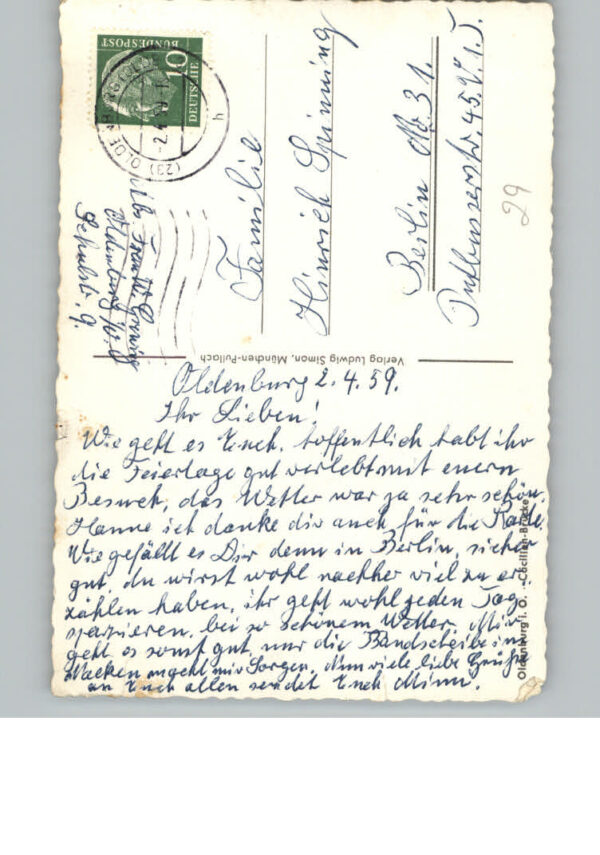 DEUTSCHE
BUNDESPOST
10
(23) OLDENBURG (OLDB)
-2.4.59
Familie
Hinrich Spinning
Berlin No. 31.
45. V. 1. T.
29
Oldenburg i/O
Schulstr. 9.
Verlag Ludwig Simon, München-Pullach
Oldenburg 2.4.59.
Ihr Lieben!
Wie geht es Euch, hoffentlich habt ihr
die Feiertage gut verlebt mit euern
Besuch, das Wetter war ja sehr schön.
Hanne ich danke dir auch für die Karte.
Wie gefällt es Dir denn in Berlin, sicher
gut, du wirst wohl nachher viel zu er,
zählen haben, ihr geht wohl jeden Tag
spazieren, bei so schönem Wetter. Mir
geht es sonst gut, nur die Bandscheibe im
Nacken macht mir Sorgen. Nun viele liebe Grüße
an Euch allen sendet Euch Minna.
Oldenburg i. O. - Cäcilien-Brücke